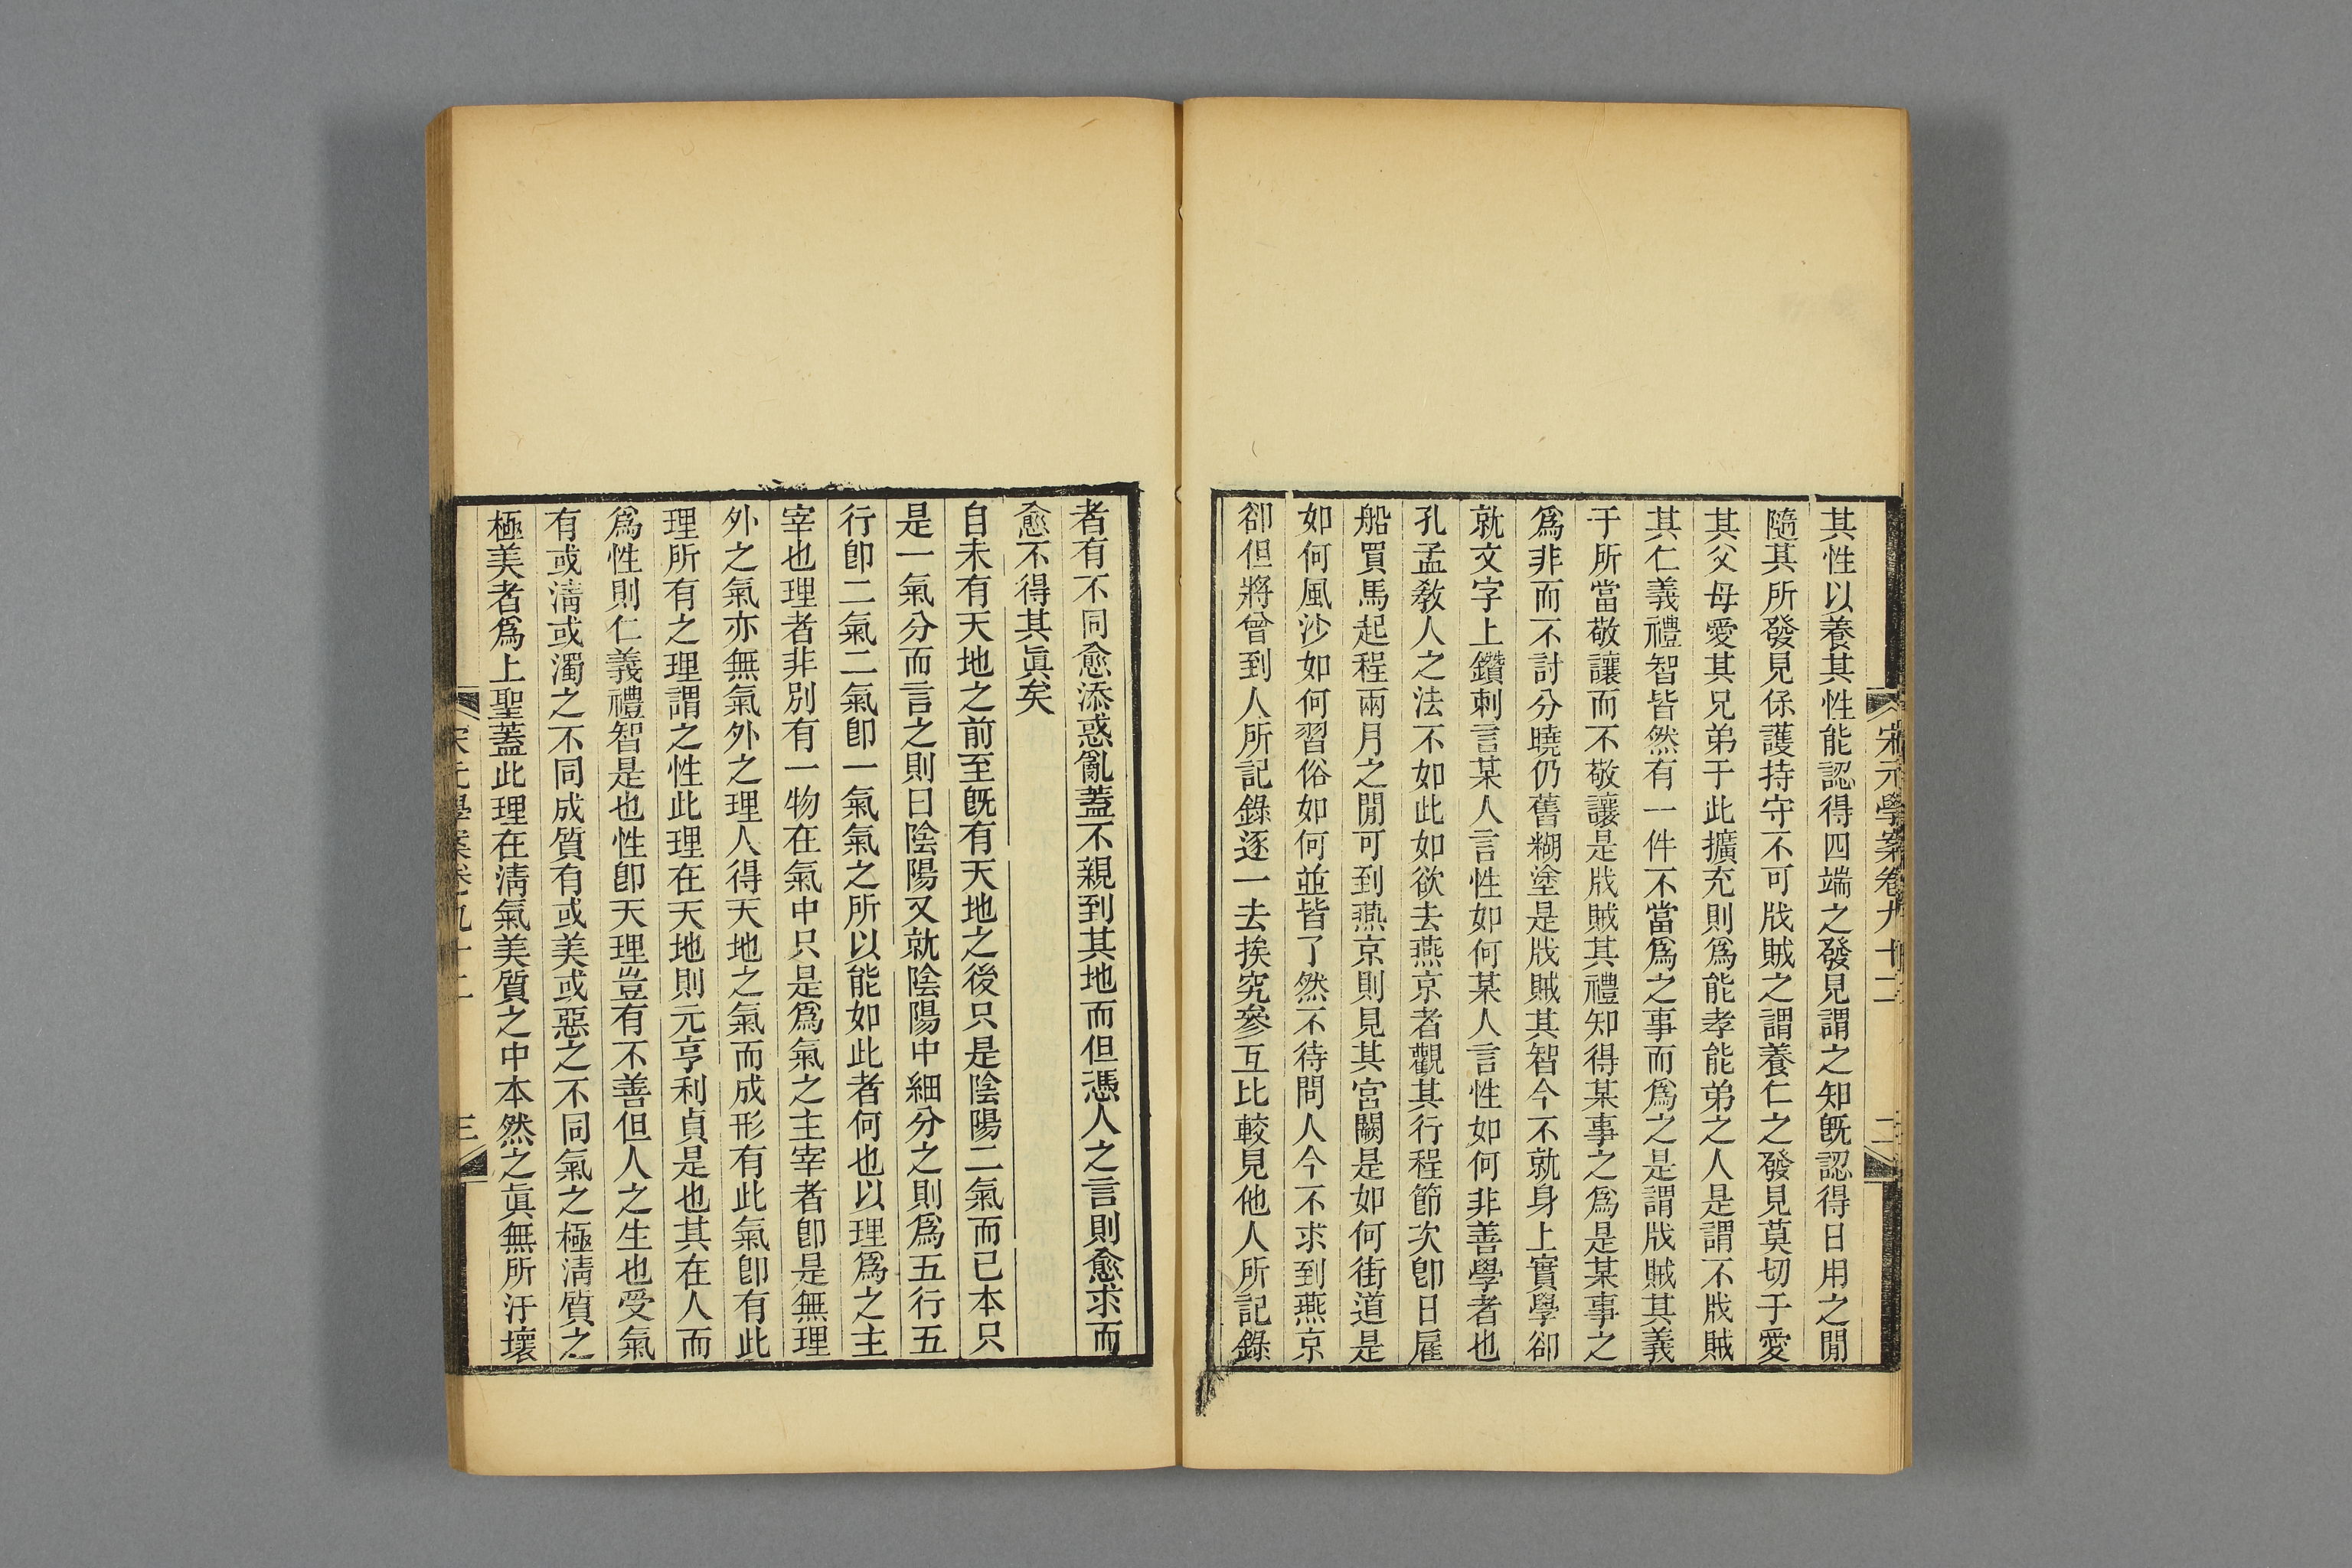 宋元學案卷九十二
二
其性以養其性能認得四端之發見謂之知旣認得日用之閒
隨其所發見保護持守不可戕賊之謂養仁之發見莫切于愛
其父母愛其兄弟于此擴充則爲能孝能弟之人是謂不戕賊
其仁義禮智皆然有一件不當爲之事而爲之是謂戕賊其義
于所當敬讓而不敬讓是戕賊其禮知得某事之爲是某事之
爲非而不討分曉仍舊糊塗是戕賊其智今不就身上實學卻
就文字上鑽刺言某人言性如何某人言性如何非善學者也
孔孟敎人之法不如此如欲去燕京者觀其行程節次卽日雇
船買馬起程兩月之閒可到燕京則見其宮闕是如何街道是
如何風沙如何習俗如何並皆了然不待問人今不求到燕京
卻但將曾到人所記錄逐一去挨究參互比較見他人所記錄
者有不同愈添惑亂蓋不親到其地而但憑人之言則愈求而
愈不得其眞矣
自未有天地之前至旣有天地之後只是陰陽二氣而已本只
是一氣分而言之則曰陰陽又就陰陽中細分之則爲五行五
行卽二氣二氣卽一氣氣之所以能如此者何也以理爲之主
宰也理者非別有一物在氣中只是爲氣之主宰者卽是無理
外之氣亦無氣外之理人得天地之氣而成形有此氣卽有此
理所有之理謂之性此理在天地則元亨利貞是也其在人而
爲性則仁義禮智是也性卽天理豈有不善但人之生也受氣
有或淸或濁之不同成質有或美或惡之不同氣之極淸質之
極美者爲上聖蓋此理在淸氣美質之中本然之眞無所汙壞
宋元學案卷九十二
三